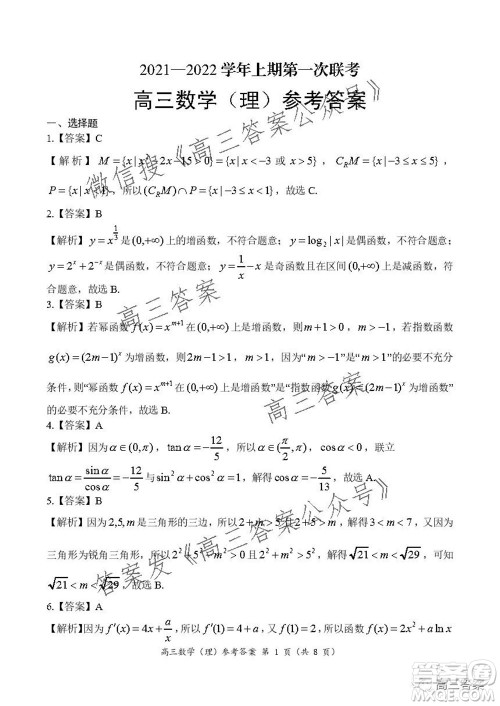 2021—2022 学年上期第一次联考
高三数学（理）参考答案
一、选择题
1.【答案】C
【解析】M={x|x²-2x-15>0}={x|x<-3或x>5}，C_R M={x|-3≤x≤5}，
P={x|x<1}，所以(C_R M)∩P={x|-3≤x<1}，故选 C.
2.【答案】B
【解析】y=x^{1/3}是(0,+∞)上的增函数，不符合题意；y=log₂|x|是偶函数，不符合题意；
y=2^x+2^{-x}是偶函数，不符合题意；y=1/x-x是奇函数且在区间(0,+∞)上是减函数，符
合题意，故选 B.
3.【答案】B
【解析】若幂函数f(x)=x^{m+1}在(0,+∞)上是增函数，则m+1>0，m>-1，若指数函数
g(x)=(2m-1)^x为增函数，则2m-1>1，m>1，因为m>-1是m>1的必要不充分
条件，则“幂函数f(x)=x^{m+1}在(0,+∞)上是增函数”是“指数函数g(x)=(2m-1)^x为增函数”
的必要不充分条件，故选 B.
4.【答案】A
【解析】因为α∈(0,π)，tanα=-12/5，所以α∈(π/2,π)，cosα<0，联立
tanα=sinα/cosα=-12/5与sin²α+cos²α=1，解得cosα=-5/13，故选 A.
5.【答案】B
【解析】因为2,5,m是三角形的三边，所以2+m>5且2+5>m，解得3<m<7，又因为
三角形为锐角三角形，所以2²+5²>m²且2²+m²>5²，解得√21<m<√29，可知
√21<m<√29，故选 B.
6.【答案】A
【解析】因为f'(x)=4x+a/x，所以f'(1)=4+a，又f(1)=2，所以函数f(x)=2x²+alnx
高三数学（理）参考答案 第 1 页（共 8 页）
微信搜《高三答案公众号》
高三答案
高三答案
答案发《高三答案公众号》
高三答案